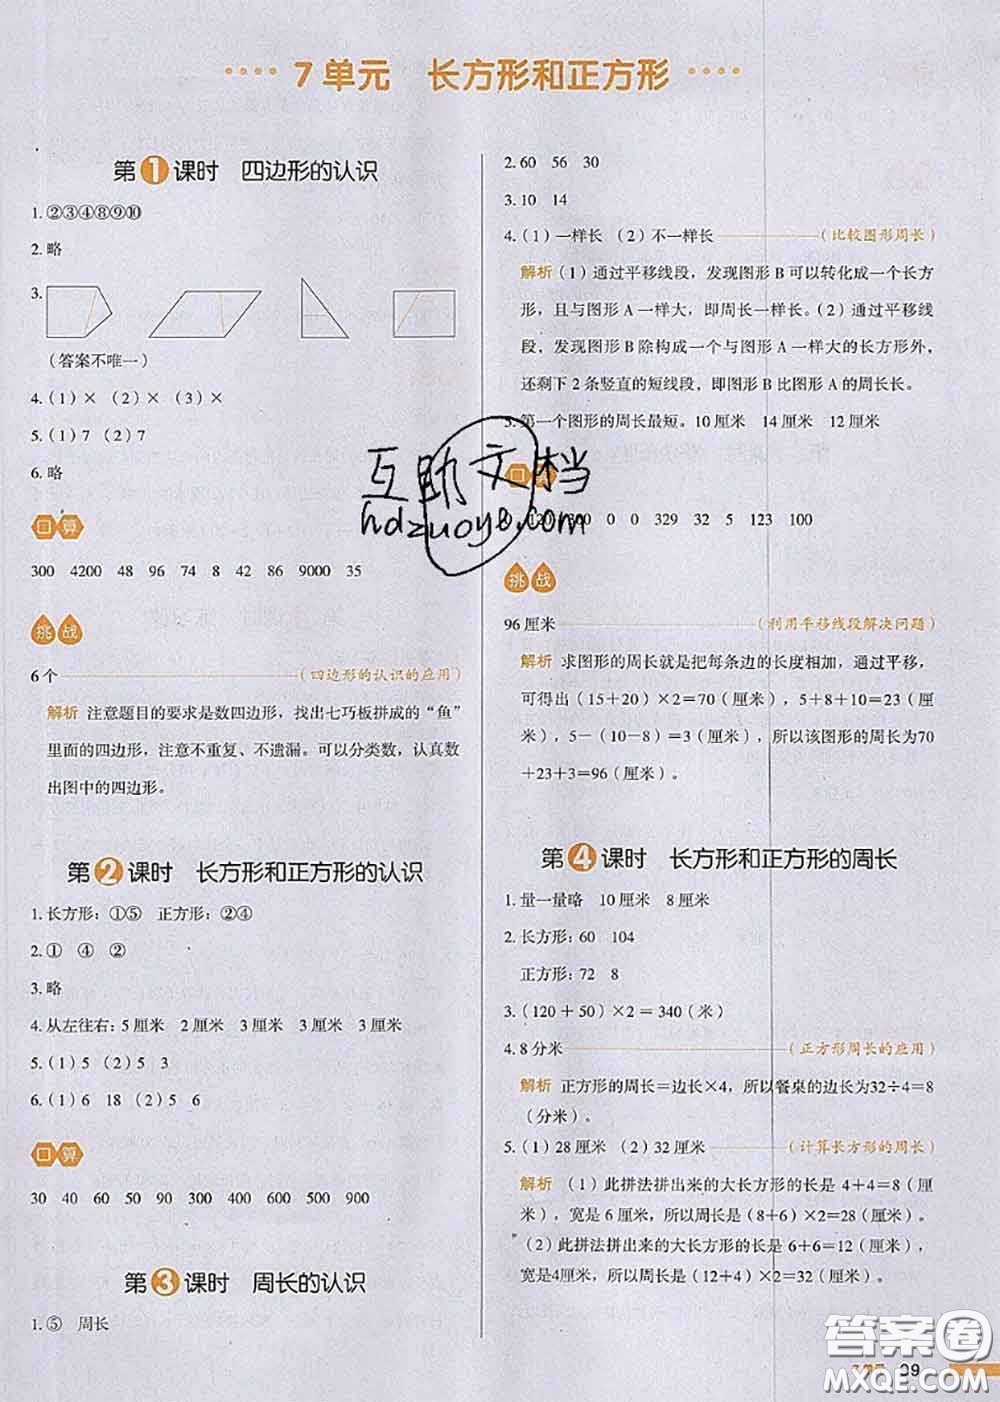 7单元 长方形和正方形
第1课时 四边形的认识
1.②③④⑧⑨⑩
2.略
3.
(答案不唯一)
4.(1)× (2)× (3)×
5.(1)7 (2)7
6.略
口算
300 4200 48 96 74 8 42 86 9000 35
挑战
6个 (四边形的认识的应用)
解析 注意题目的要求是数四边形，找出七巧板拼成的“鱼”
里面的四边形，注意不重复、不遗漏。可以分类数，认真数
出图中的四边形。
第2课时 长方形和正方形的认识
1.长方形：①⑤ 正方形：②④
2.① ④ ②
3.略
4.从左往右：5厘米 2厘米 3厘米 3厘米 3厘米
5.(1)5 (2)5 3
6.(1)6 18 (2)5 6
口算
30 40 60 50 90 300 500 500 900
第3课时 周长的认识
1.⑤ 周长
2.60 56 30
3.10 14
4.(1)一样长 (2)不一样长 (比较图形周长)
解析 (1)通过平移线段，发现图形B可以转化成一个长方
形，且与图形A一样大，即周长一样长。(2)通过平移线
段，发现图形B除构成一个与图形A一样大的长方形外，
还剩下2条竖直的短线段，即图形B比图形A的周长长。
5.第一个图形的周长最短。10厘米 14厘米 12厘米
口算
120 300 0 0 329 32 5 123 100
挑战
96厘米 (利用平移线段解决问题)
解析 求图形的周长就是把每条边的长度相加，通过平移，
可得出(15+20)×2=70(厘米)，5+8+10=23(厘
米)，5-(10-8)=3(厘米)，所以该图形的周长为70
+23+3=96(厘米)。
第4课时 长方形和正方形的周长
1.量一量略 10厘米 8厘米
2.长方形：60 104
正方形：72 8
3.(120+50)×2=340(米)
4.8分米 (正方形周长的应用)
解析 正方形的周长=边长×4，所以餐桌的边长为32÷4=8
(分米)。
5.(1)28厘米 (2)32厘米 (计算长方形的周长)
解析 (1)此拼法拼出来的大长方形的长是4+4=8(厘
米)，宽是6厘米，所以周长是(8+6)×2=28(厘米)。
(2)此拼法拼出来的大长方形的长是6+6=12(厘米)，
宽是4厘米，所以周长是(12+4)×2=32(厘米)。
互助文档
hdzuoye.com
答案圈
MXQE.COM